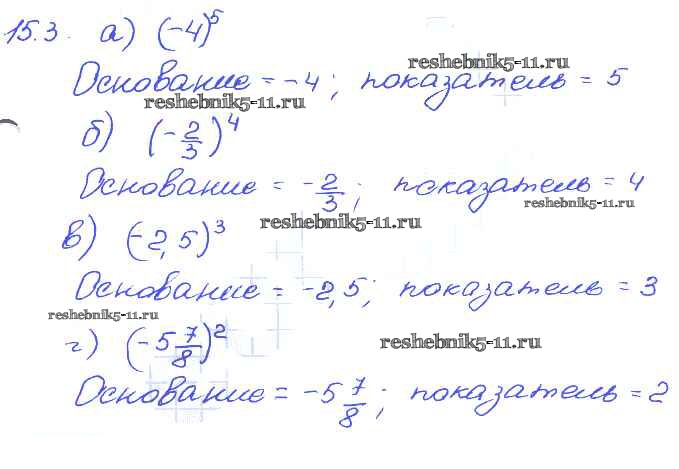 15.3. а) (-4)^5
Основание = -4; показатель = 5
б) (-2/3)^4
Основание = -2/3; показатель = 4
в) (-2,5)^3
Основание = -2,5; показатель = 3
г) (-5 7/8)^2
Основание = -5 7/8; показатель = 2
reshebnik5-11.ru
reshebnik5-11.ru
reshebnik5-11.ru
reshebnik5-11.ru
reshebnik5-11.ru
reshebnik5-11.ru